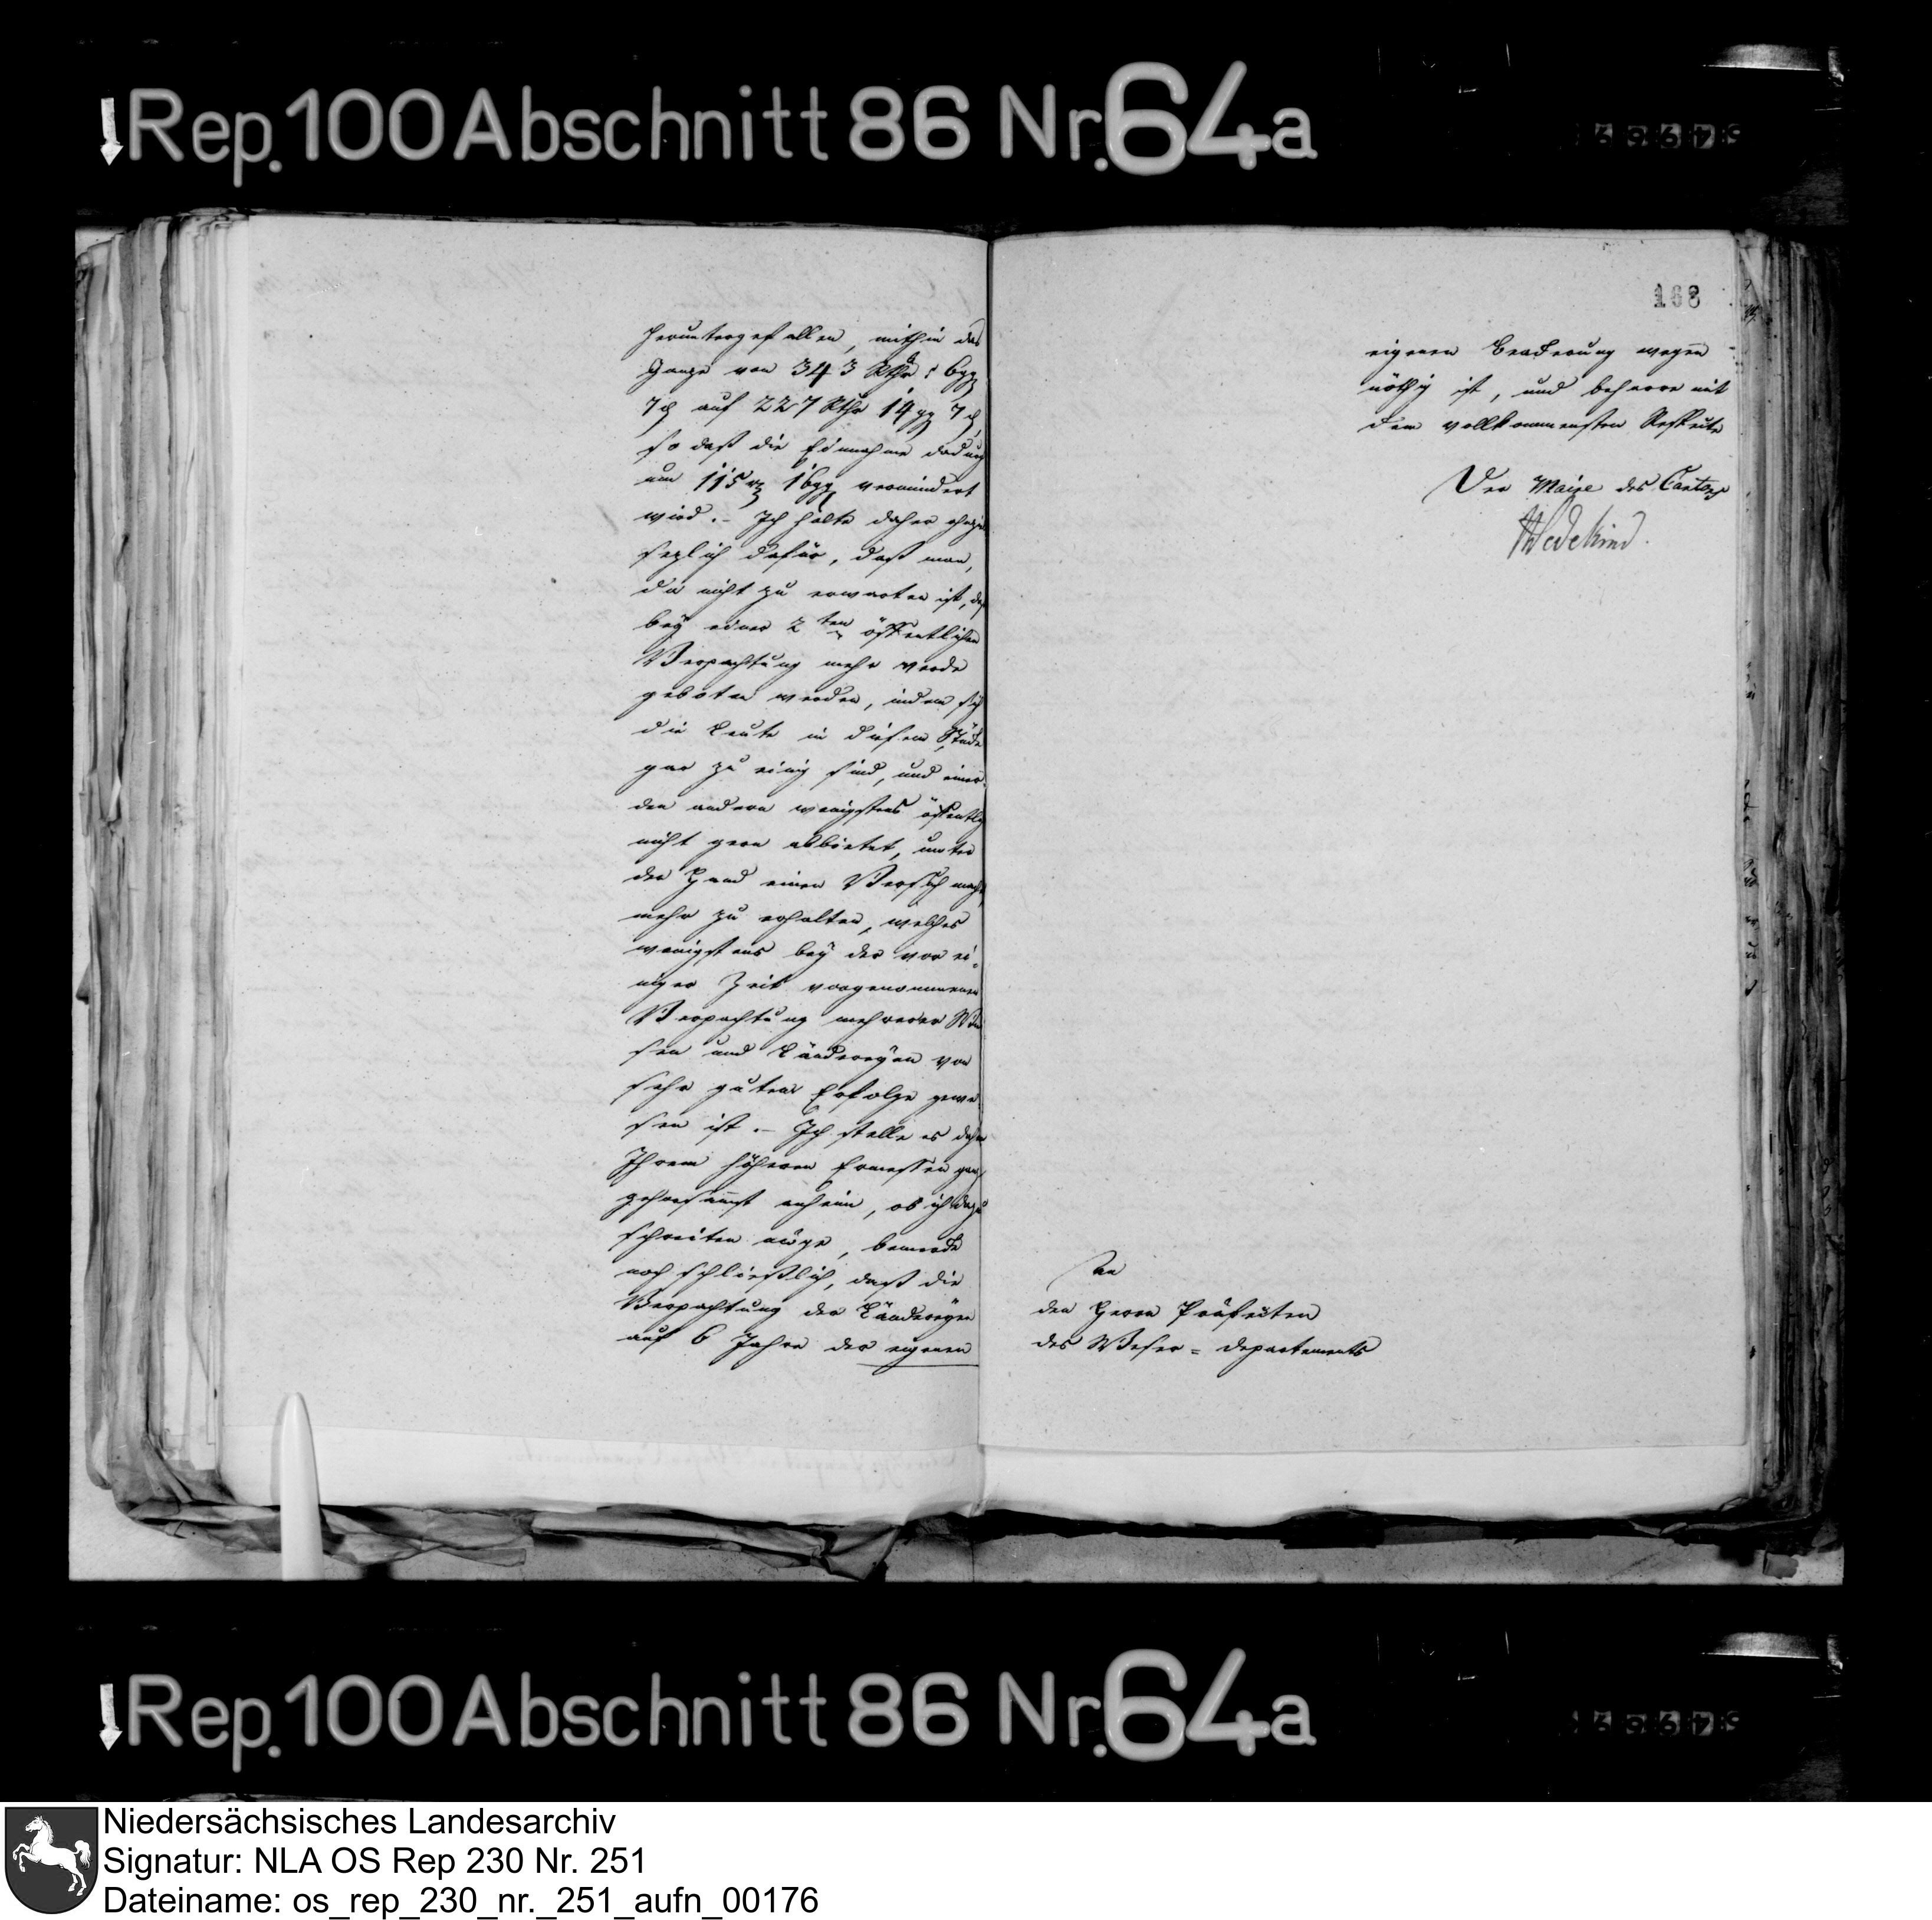 Rep. 100 Abschnitt 86 Nr. 64a
heruntergefallen, mithin das
Ganze von 343 Rthr 6 ggr
7 d auf 227 Rthr 14 ggr 7 d,
so daß die Einnahme dadurch
um 115 rt 16 ggr vermindert
wird. – Ich halte daher
dafür, daß man,
da nicht zu erwarten ist, daß
bey einer 2ten öffentlichen
Verpachtung mehr werde
geboten werden, indem sich
die Leute in diesem Stücke
gar zu einig sind, und einer
den andern wenigstens öffentlich
nicht gern abbietet, unter
der Hand einen Versuch mache,
mehr zu erhalten, welches
wenigstens bey der vor ei-
niger Zeit vorgenommenen
Verpachtung mehrerer Wie
sen und Ländereyen von
sehr gutem Erfolge gewe
sen ist. – Ich stelle es daher
Ihrem höheren Ermessen ganz
gehorsamst anheim, ob ich dazu
schreiten möge, bemerke
noch schließlich, daß die
Verpachtung der Ländereyen
auf 6 Jahre der eigenen
168
eigenen Beackerung wegen
nöthig ist, und beharre mit
dem vollkommensten Respecte
Der Maire des Cantons
Wedekind.
An
den Herrn Präfecten
des Weser-departements
Rep. 100 Abschnitt 86 Nr. 64a
Niedersächsisches Landesarchiv
Signatur: NLA OS Rep 230 Nr. 251
Dateiname: os_rep_230_nr._251_aufn_00176